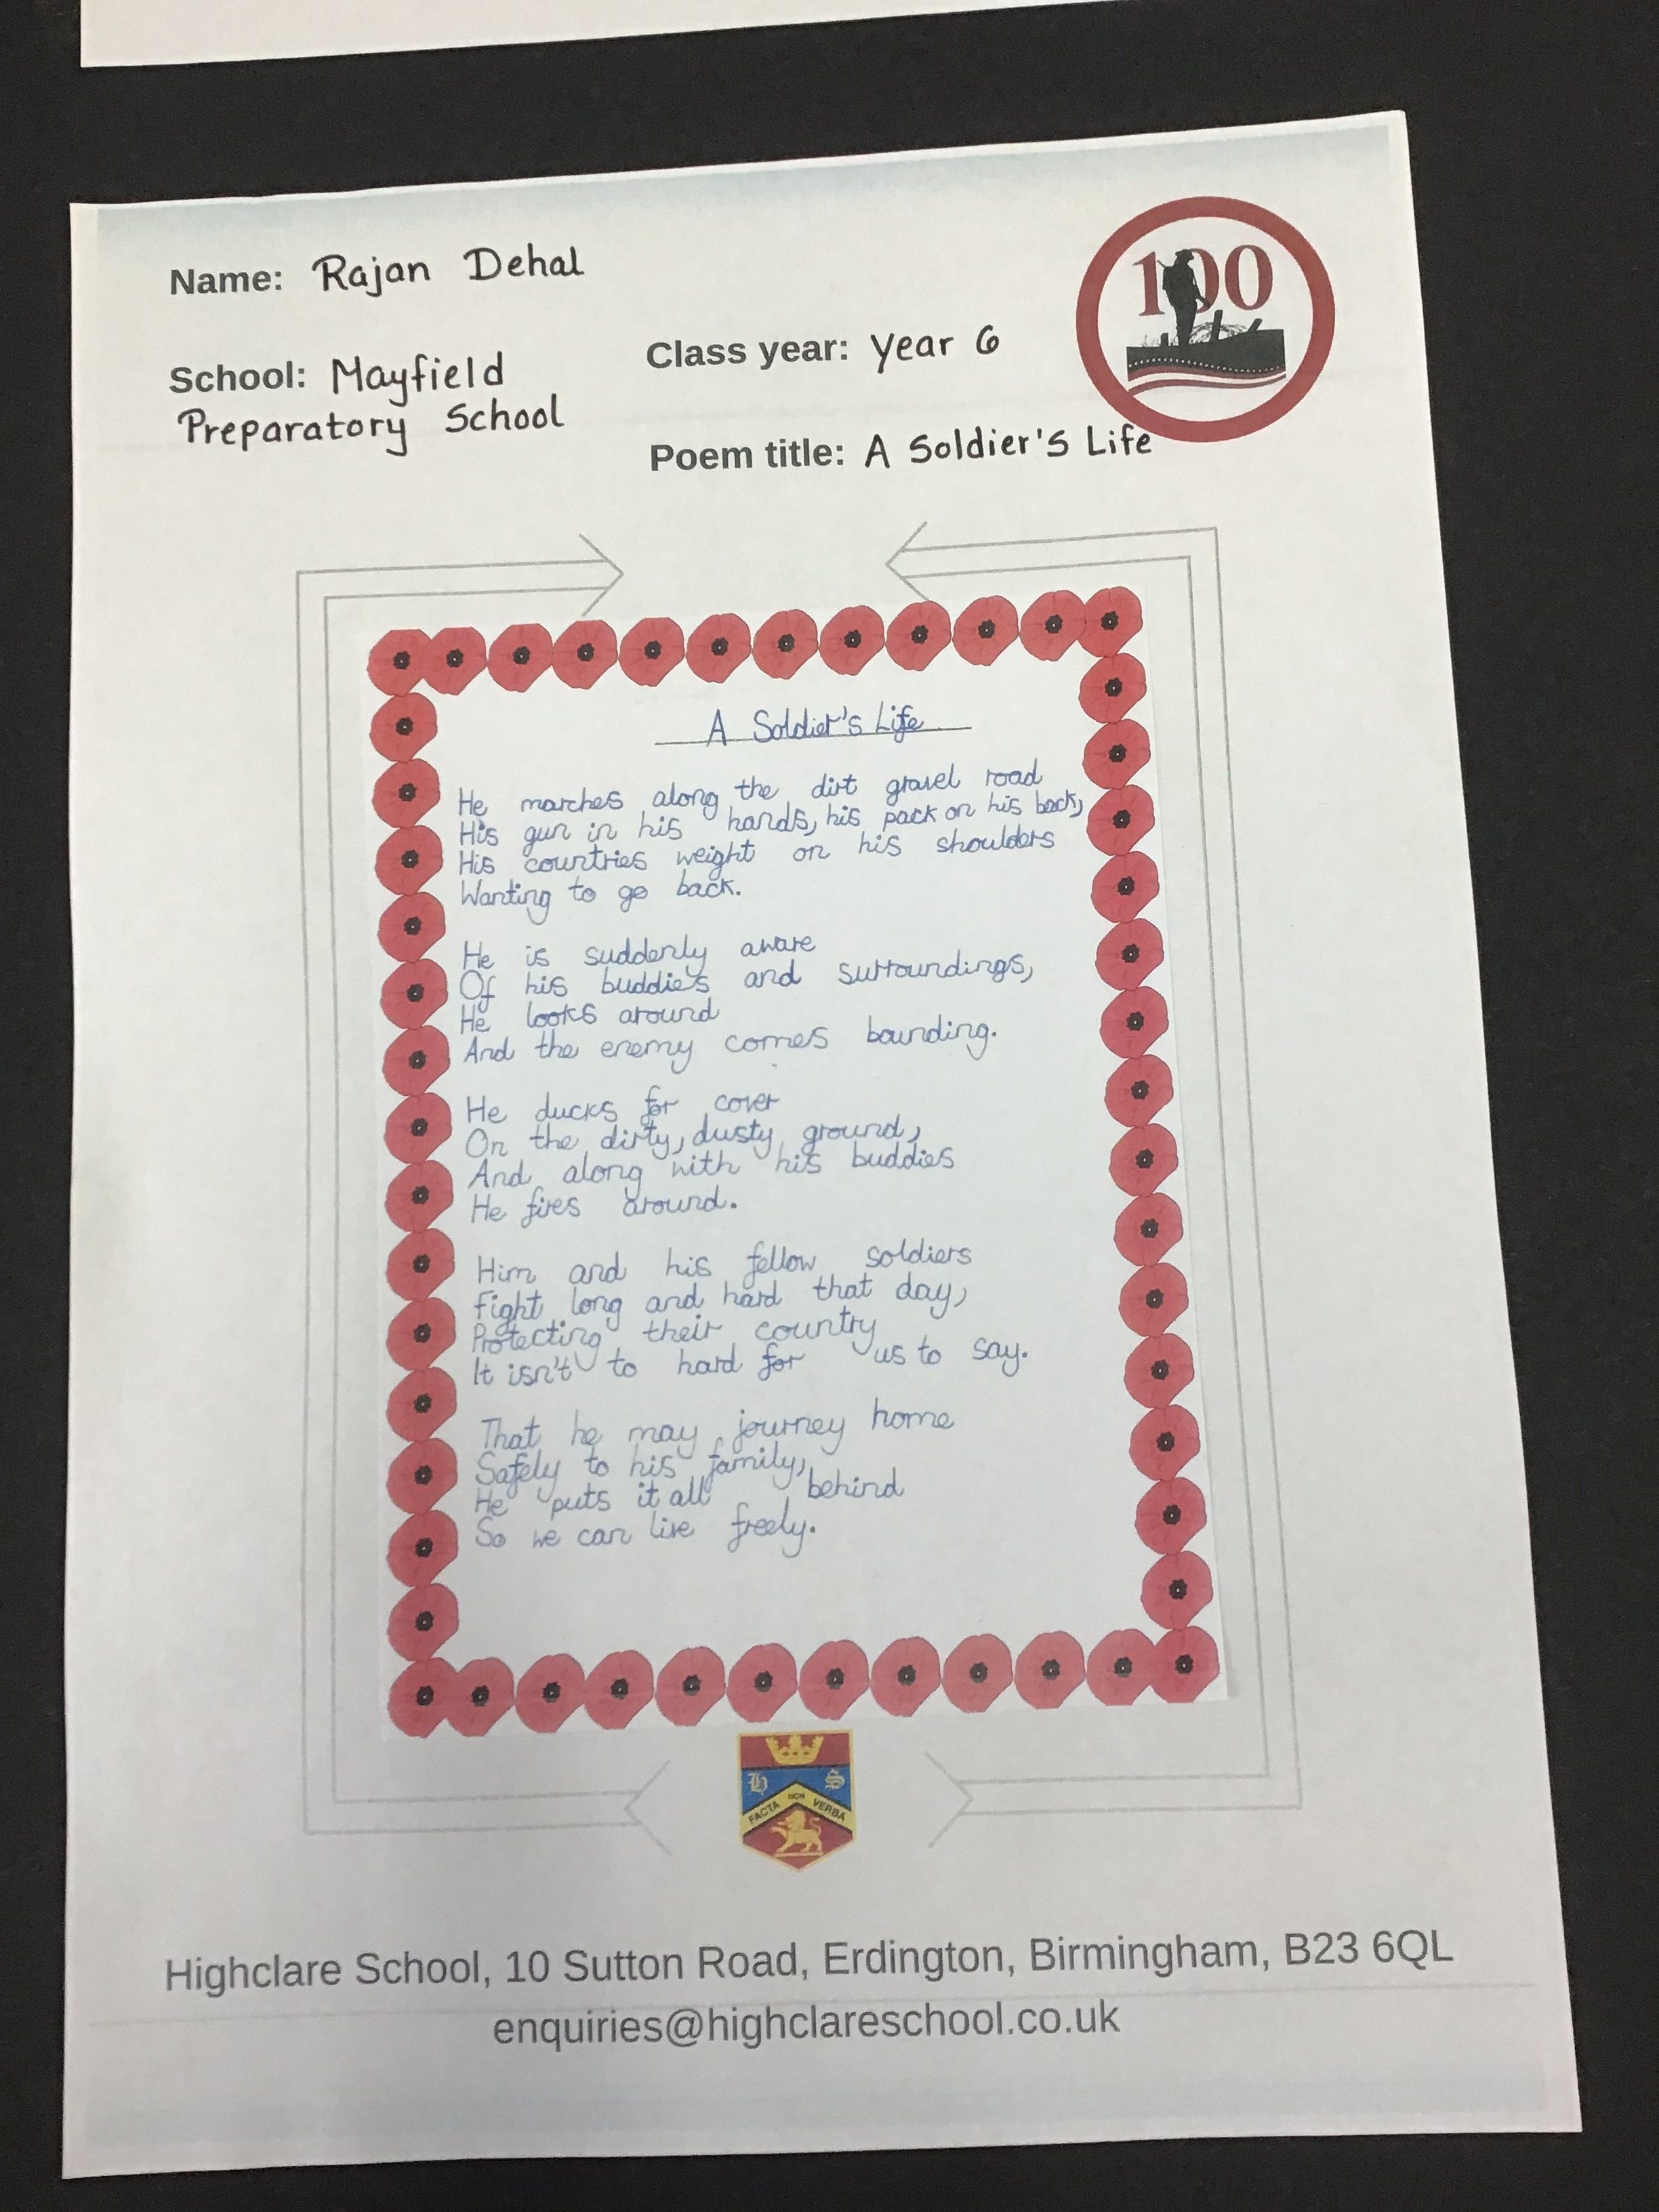 Name: Rajan Dehal
100
School: Mayfield
Preparatory School
Class year: Year 6
Poem title: A Soldier's Life
A Soldier's Life
He marches along the dirt gravel road
His gun in his hands, his pack on his back,
His countries weight on his shoulders
Wanting to go back.
He is suddenly aware
Of his buddie's and surroundings,
He looks around
And the enemy comes bounding.
He ducks for cover
On the dirty, dusty ground,
And along with his buddies
He fires around.
Him and his fellow soldiers
Fight long and hard that day,
Protecting their country
It isn't to hard for us to say.
That he may journey home
Safely to his family,
He puts it all behind
So we can live freely.
H S
FACTA NON VERBA
Highclare School, 10 Sutton Road, Erdington, Birmingham, B23 6QL
enquiries@highclareschool.co.uk